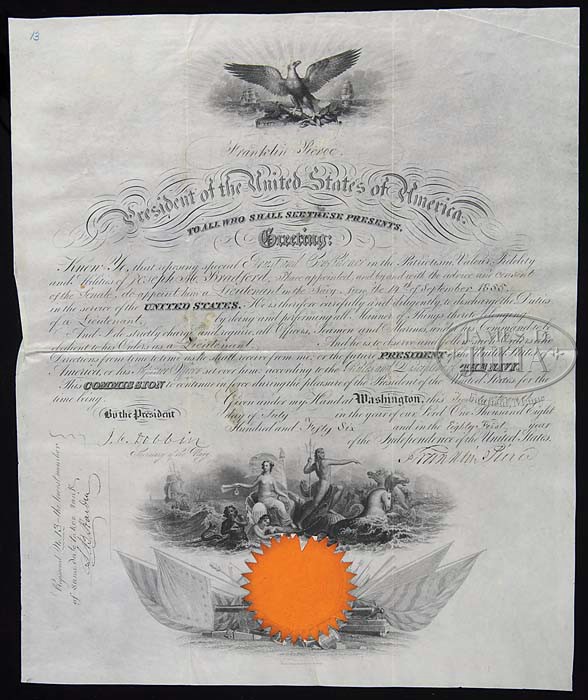 13
Franklin Pierce.
President of the United States of America.
TO ALL WHO SHALL SEE THESE PRESENTS,
Greeting:
Know Ye, that reposing special Trust and Confidence in the Patriotism, Valour, Fidelity
and Abilities of Joseph M. Bradford, I have nominated, and by and with the advice and consent
of the Senate, do appoint him a Lieutenant in the Navy from the 14th of September 1855
in the service of the UNITED STATES. He is therefore carefully and diligently to discharge the Duties
of a Lieutenant by doing and performing all Manner of Things thereto belonging.
And I do strictly charge and require all Officers, Seamen and Marines, under his Command to be
obedient to his Orders as a Lieutenant And he is to observe and follow such Orders and
Directions from time to time as he shall receive from me, or the future PRESIDENT of the United States of
America, or his Superior Officer set over him, according to the Rules and Discipline of THE NAVY.
This COMMISSION to continue in force during the pleasure of the President of the United States for the
time being. Given under my Hand at Washington, this
By the President Day of July in the year of our Lord One Thousand Eight
Hundred and Fifty Six and in the Eighty First year
of the Independence of the United States.
J. C. Dobbin
Secretary of the Navy.
Franklin Pierce
Registered No. 13 the lowest number
of same date takes rank